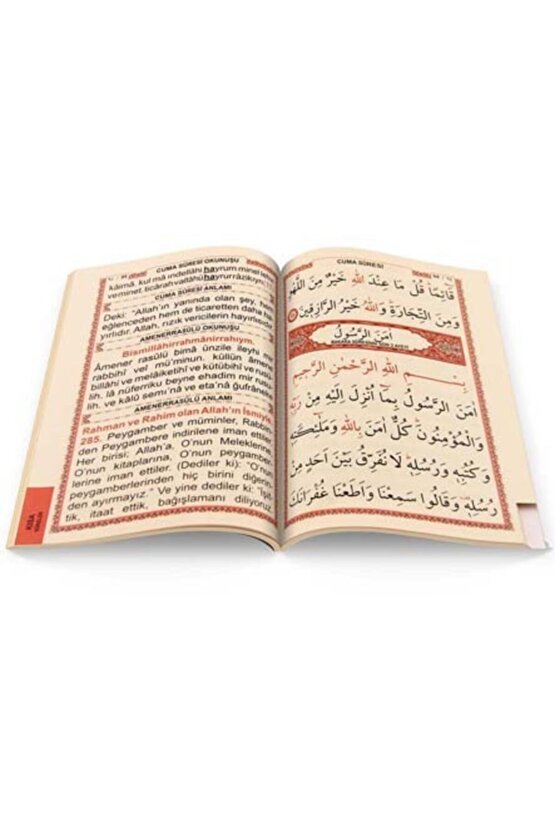 CUMA SÛRESİ OKUNUŞU
kâimâ, kul mâ indellâhi hayrum minel lehvi
veminet ticârah vallâhü hayrurrâzikîn.
CUMA SÛRESİ ANLAMI
Deki: "Allah'ın yanında olan şey, hem
eğlenceden hem de ticaretten daha hayır
lıdır. Allah, rızık vericilerin hayırlısıdır.
AMENERRASÛLÜ OKUNUŞU
Bismillâhirrahmânirrahıym.
Âmener rasûlü bimâ ünzile ileyhi mir
rabbihî vel mü'minun. küllün âmene
billâhi ve melâiketihî ve kütübihî ve rusü-
lih. lâ nüferriku beyne ehadim mir rusü-
lih. ve kâlû semi'nâ ve eta'nâ ğufrânek
AMENERRASÛLÜ ANLAMI
Rahman ve Rahim olan Allah'ın İsmiyle
285. Peygamber ve müminler, Rabbin-
den Peygambere indirilene iman ettiler.
Her birisi; Allah'a, O'nun Meleklerine,
O'nun kitaplarına, O'nun peygamber-
lerine iman ettiler. (Dediler ki): "O'nun
peygamberlerinden hiç birini diğerin-
den ayırmayız." Ve yine dediler ki: "İşit-
tik, itaat ettik, bağışlamanı diliyoruz.
KISA
SÛRELER
CUMA SÛRESİ
قَائِمًا قُلْ مَا عِنْدَ اللّٰهِ خَيْرٌ مِنَ اللَّهْوِ
وَمِنَ التِّجَارَةِ وَاللّٰهُ خَيْرُ الرَّازِقِينَ
اٰمَنَ الرَّسُولُ
بِسْمِ اللّٰهِ الرَّحْمٰنِ الرَّحِيمِ
اٰمَنَ الرَّسُولُ بِمَا اُنْزِلَ اِلَيْهِ مِنْ رَبِّهِ
وَالْمُؤْمِنُونَ كُلٌّ اٰمَنَ بِاللّٰهِ وَمَلٰئِكَتِهِ
وَكُتُبِهِ وَرُسُلِهِ لَا نُفَرِّقُ بَيْنَ اَحَدٍ مِنْ
رُسُلِهِ وَقَالُوا سَمِعْنَا وَاَطَعْنَا غُفْرَانَكَ